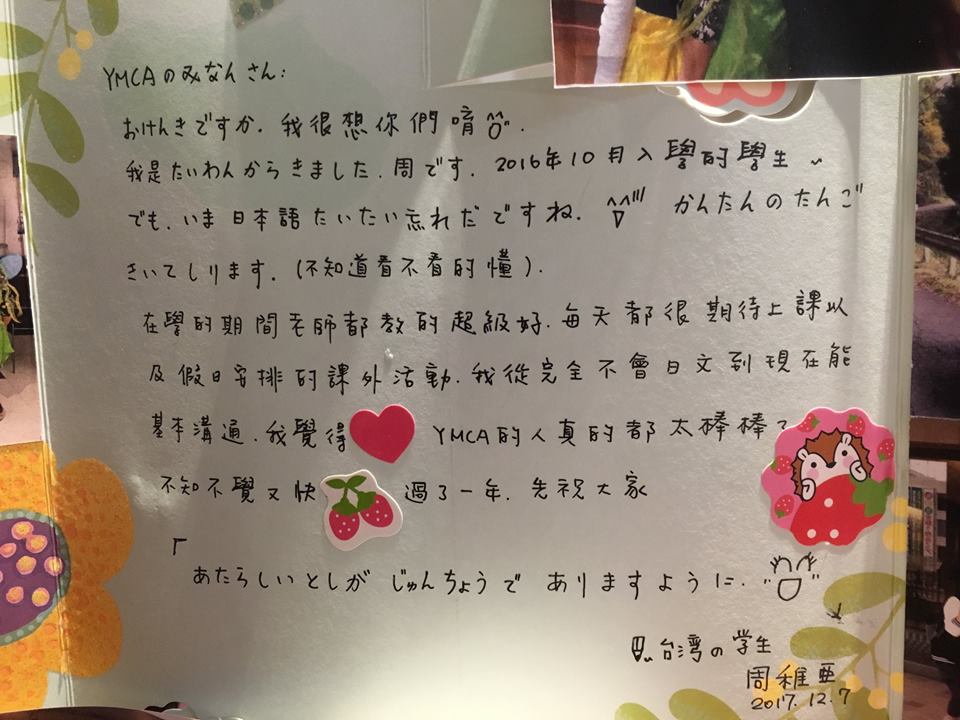 YMCAのみなんさん:
おけんきですか. 我很想你們唷
我是たいわんからきました. 周です. 2016年10月入學的學生~
でも. いま日本語たいたい忘れだですね. かんたんのたんご
きいてしります. (不知道看不看的懂).
在學的期間老師都教的超級好. 每天都很期待上課以
及假日安排的課外活動. 我從完全不會日文到現在能
基本溝通. 我覺得 YMCA的人真的都太棒棒~
不知不覺又快 過了一年. 先祝大家
「
あたらしいとしが じゅんちょうで ありますように.
台湾の学生
周稚亜
2017.12.7